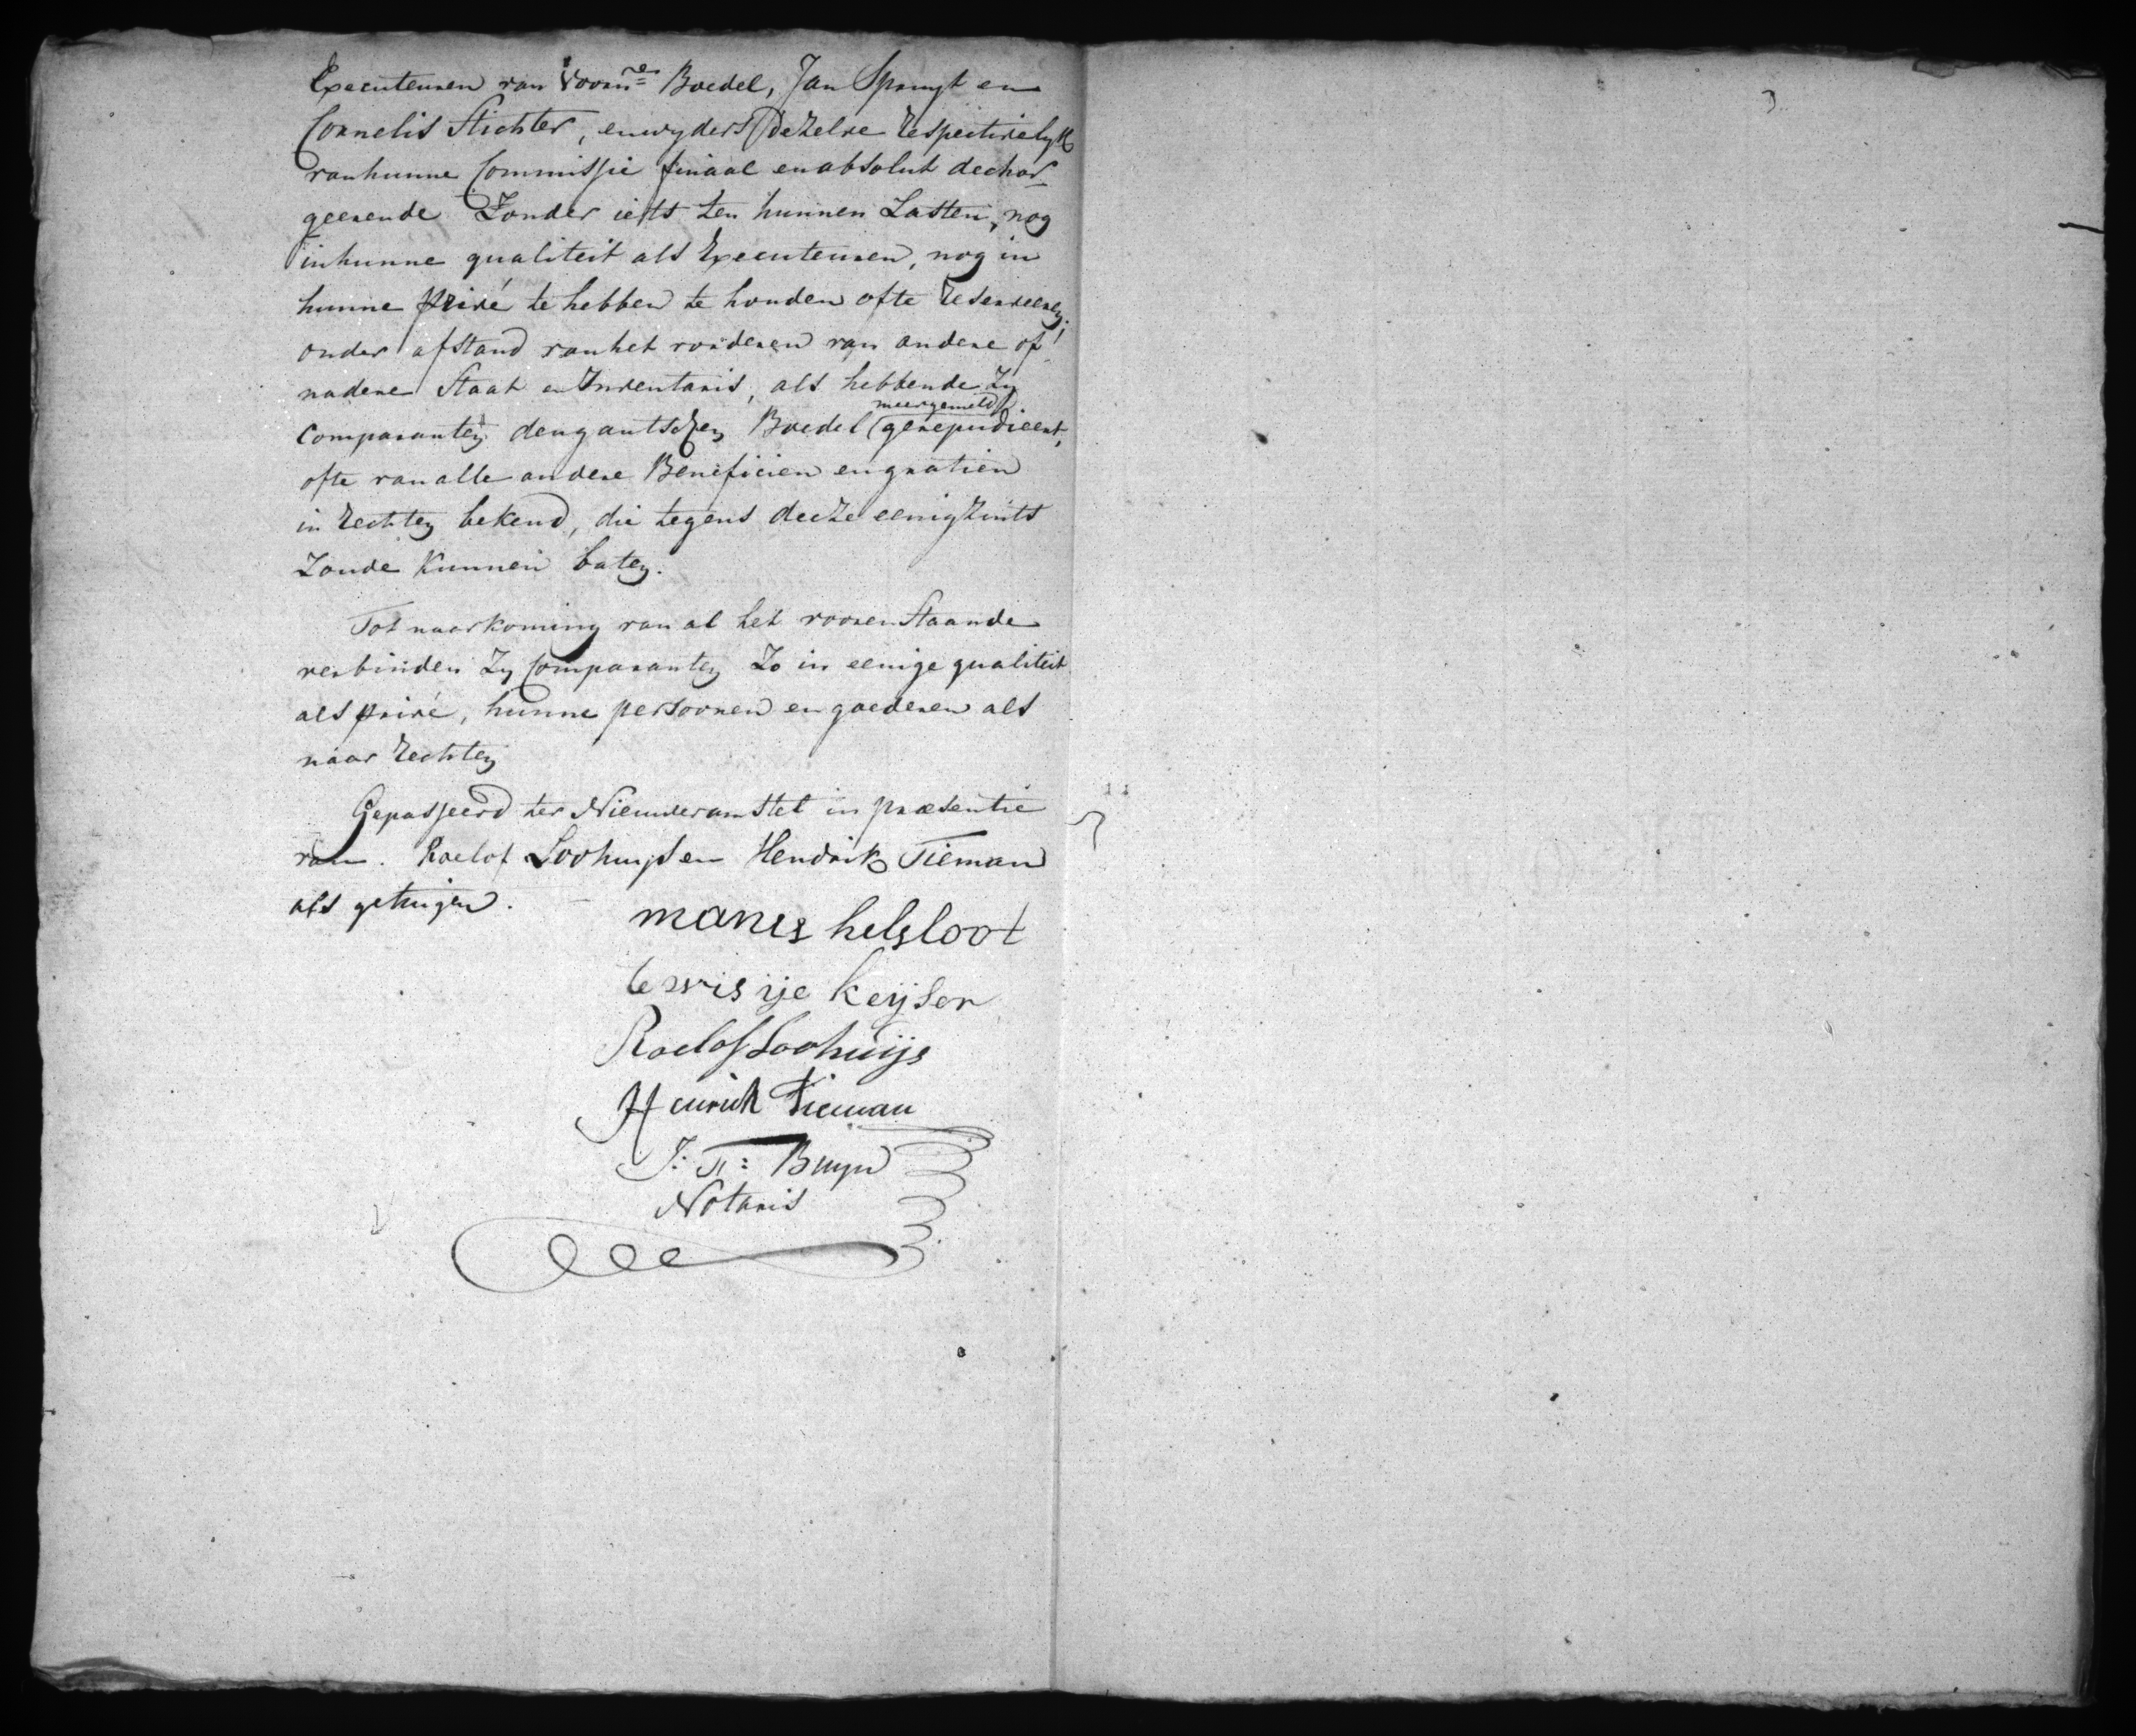 Executeuren van Voorn:e Boedel, Jan Spruyt en
Cornelis Stichter, en wyders dezelve respectivelyk
van hunne Commissie finaal en absolut dechar-
geerende Zonder iets ten hunnen Lasten, nog
in hunne qualiteit als Executeuren, nog in
hunne privé te hebben te houden ofte reserveeren;
onder afstand van het vorderen van andere of
nadere Staat en Inventaris, als hebbende Zy
meergemeld
Comparanten den gantschen Boedel gerepudieert,
ofte van alle andere Beneficien en gratien
in rechten bekend, die tegens deeze eenigzints
Zoude Kunnen baten.
Tot naarkoming van al het vooren Staande
verbinden Zy Comparanten Zo in eenige qualiteit
als privé, hunne persoonen en goederen als
naar rechten
Gepasseerd ter Nieuweramstel in præsentie
van. Roelof Loohuys en Hendrik Tieman
als getuigen.
manes helsloot
Roelof Loohuijs
Heinrich Tieman
Bruyn
Notaris